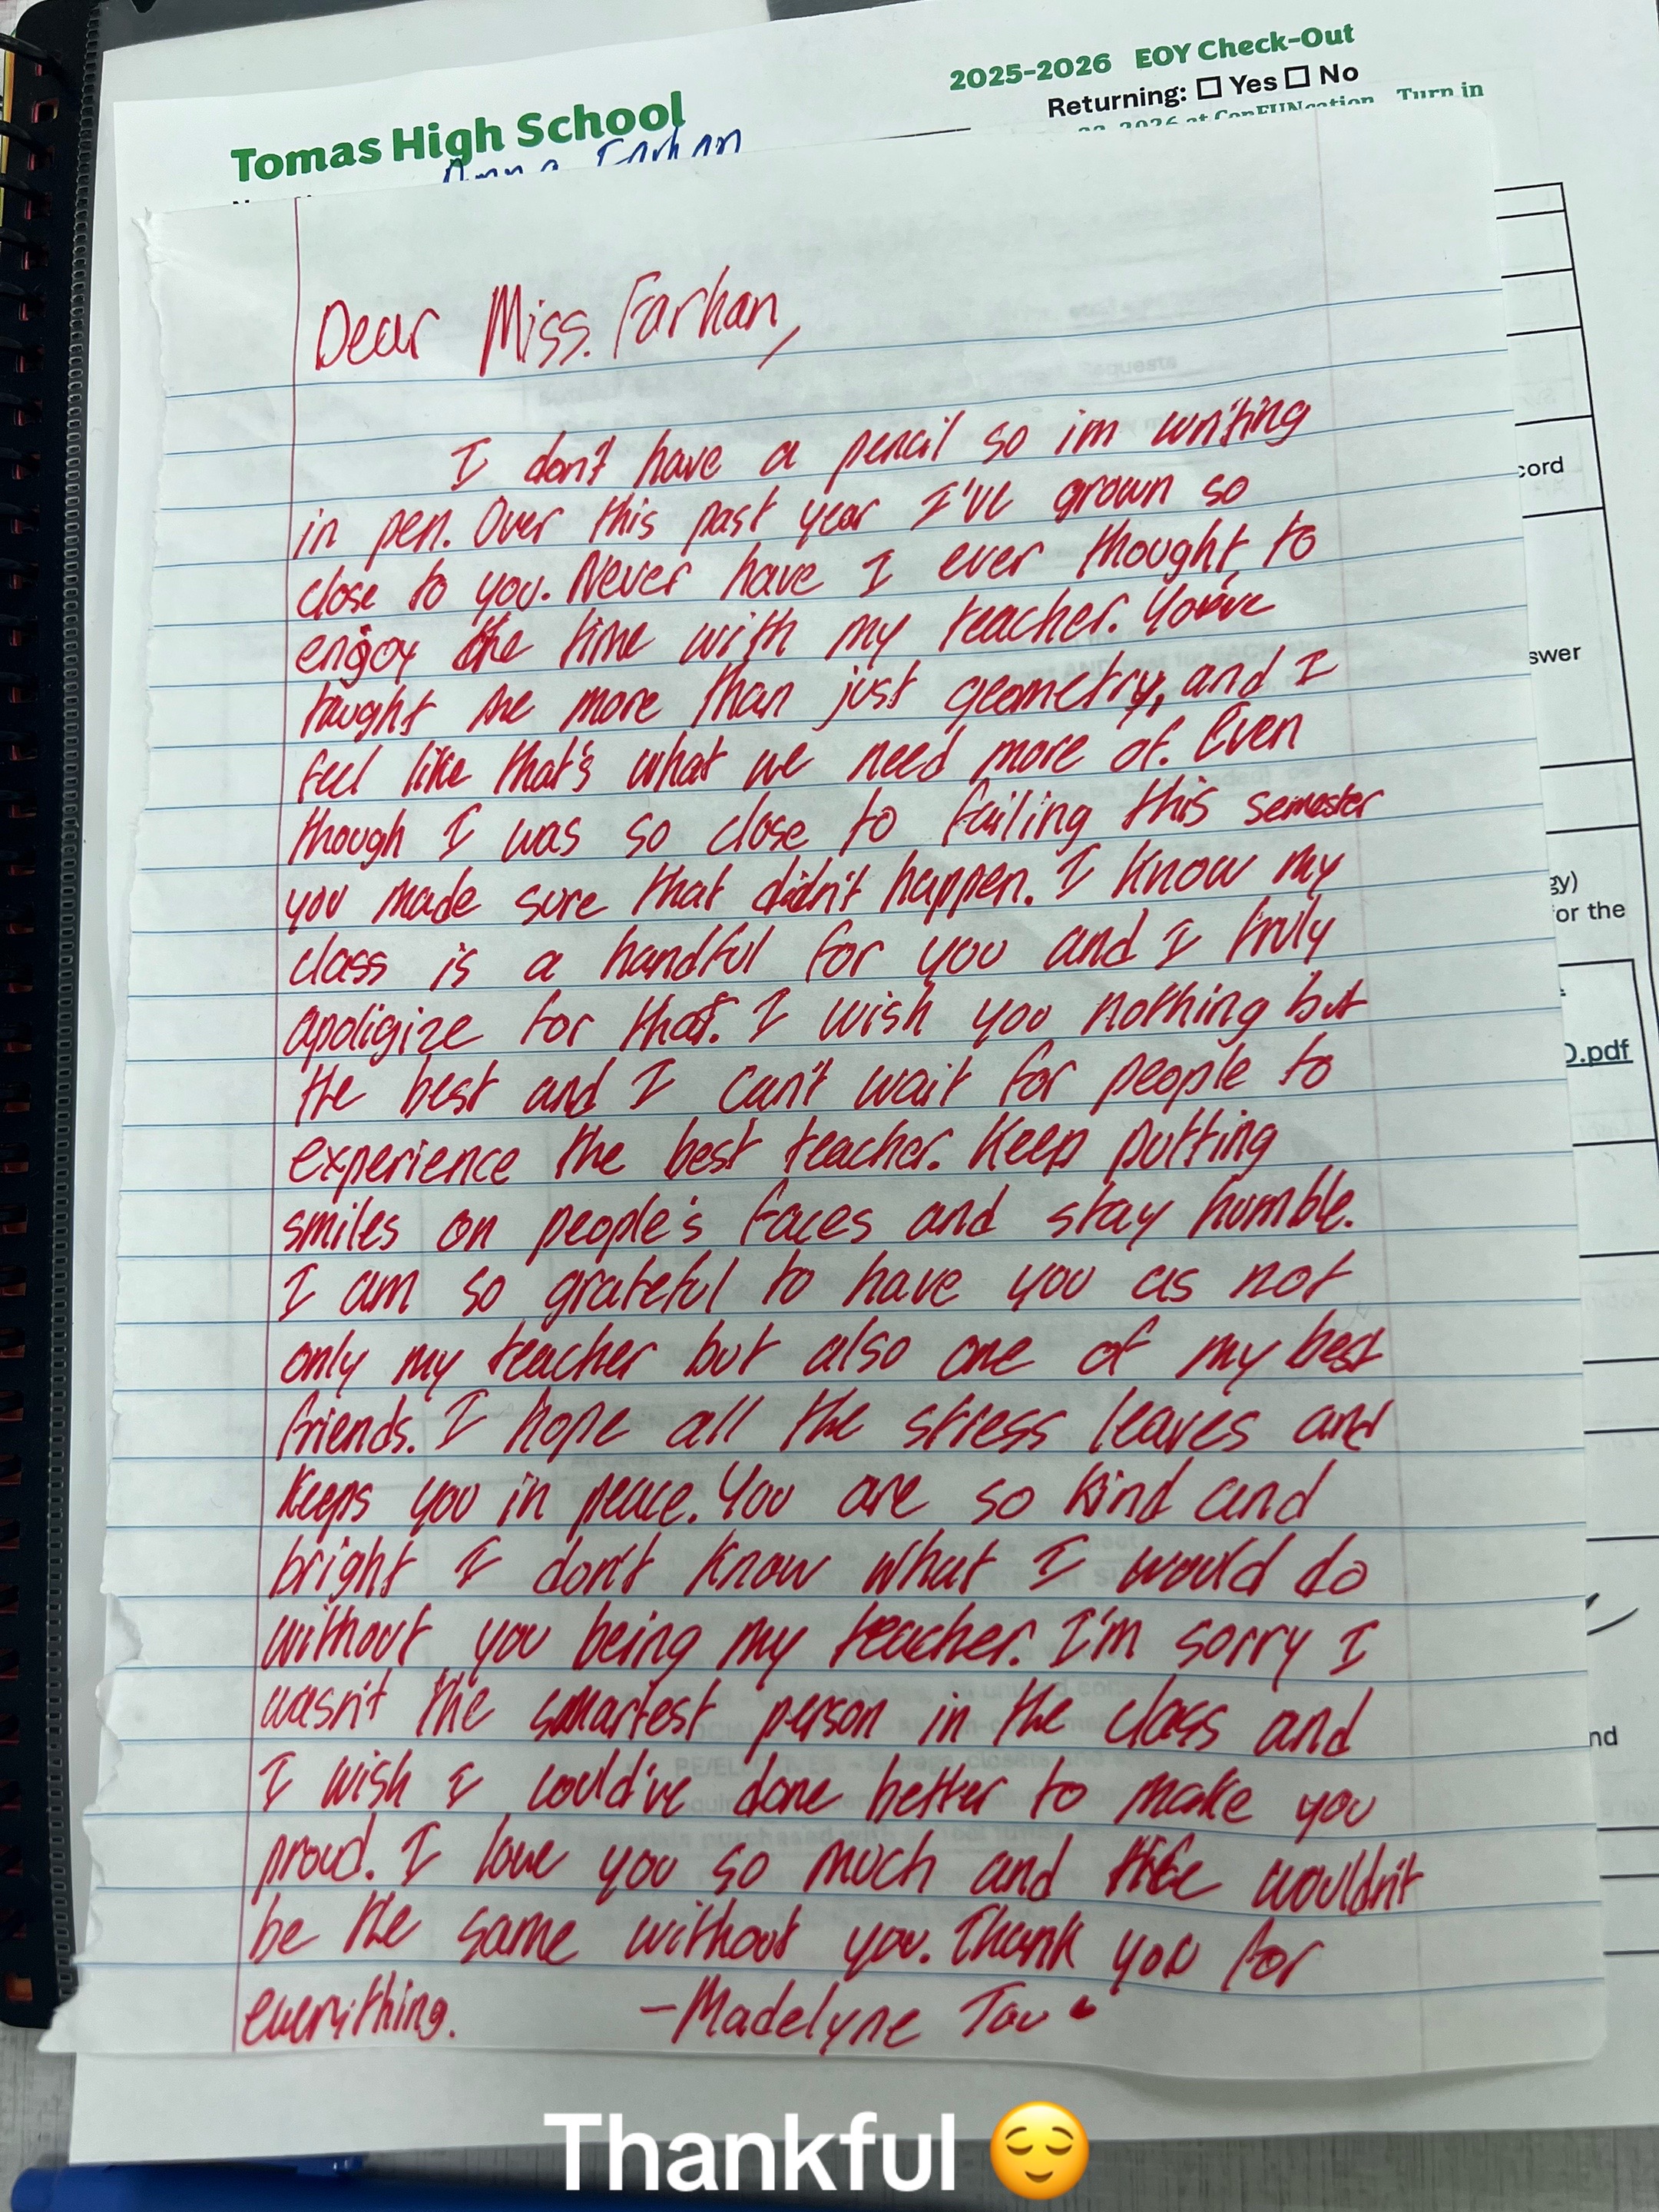 2025-2026 EOY Check-Out
Returning: ☐ Yes ☐ No
2026 at ConFUNcation Turn in
Tomas High School
Farhan
cord
swer
gy)
or the
O.pdf
nd
Dear Miss. Farhan,
I don't have a pencil so im writing
in pen. Over this past year I've grown so
close to you. Never have I ever thought, to
enjoy the time with my teacher. You've
taught me more than just geometry, and I
feel like that's what we need more of. Even
though I was so close to failing this semester
you made sure that didn't happen. I know my
class is a handful for you and I truly
apoligize for that. I wish you nothing but
the best and I can't wait for people to
experience the best teacher. Keep putting
smiles on people's faces and stay humble.
I am so grateful to have you as not
only my teacher but also one of my best
friends. I hope all the stress leaves and
keeps you in peace. You are so kind and
bright I don't know what I would do
without you being my teacher. I'm sorry I
wasn't the smartest person in the class and
I wish I could've done better to make you
proud. I love you so much and life wouldn't
be the same without you. Thank you for
everything. -Madelyne
Thankful 😌